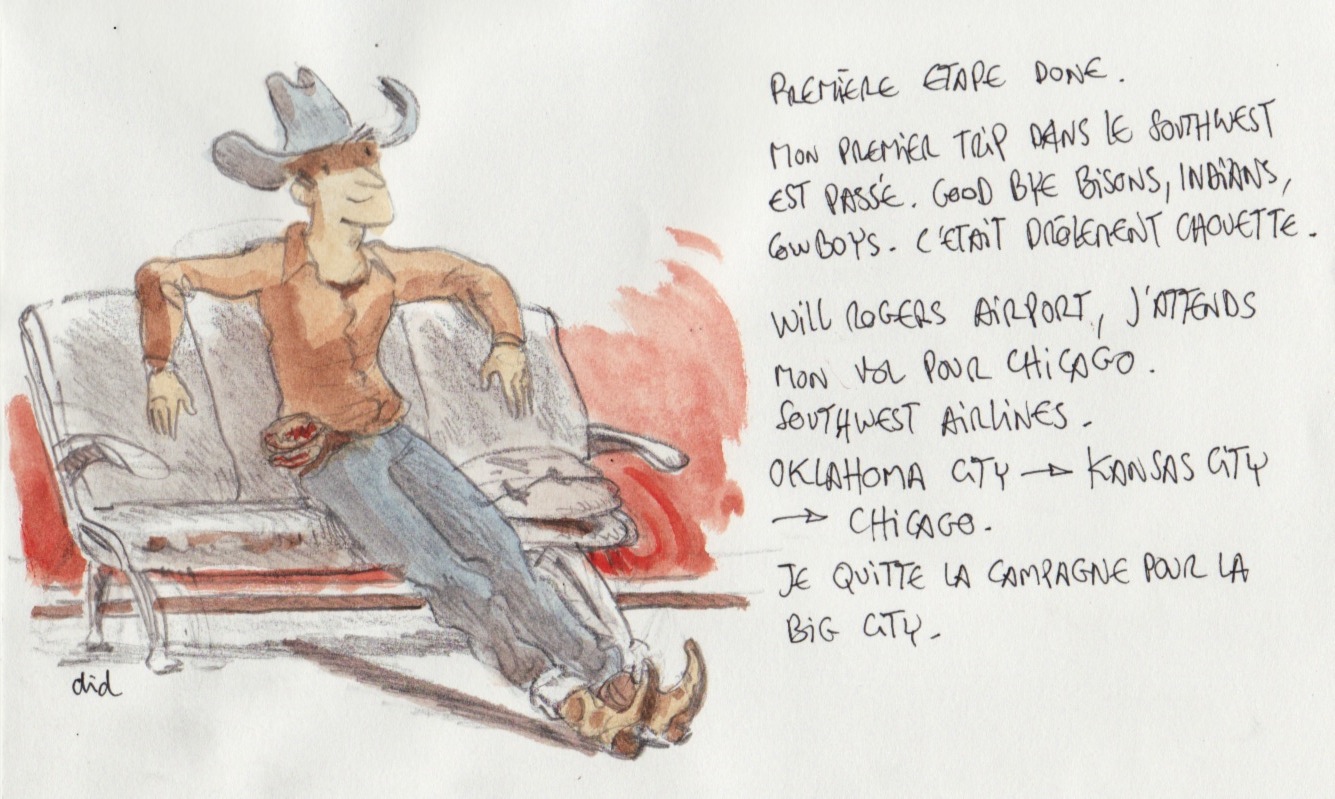 PREMIÈRE ETAPE DONE.
MON PREMIER TRIP DANS LE SOUTHWEST
EST PASSÉ. GOOD BYE BISONS, INDIANS,
COWBOYS. C'ETAIT DRÔLEMENT CHOUETTE.
WILL ROGERS AIRPORT, J'ATTENDS
MON VOL POUR CHICAGO.
SOUTHWEST AIRLINES.
OKLAHOMA CITY → KANSAS CITY
→ CHICAGO.
JE QUITTE LA CAMPAGNE POUR LA
BIG CITY.
did